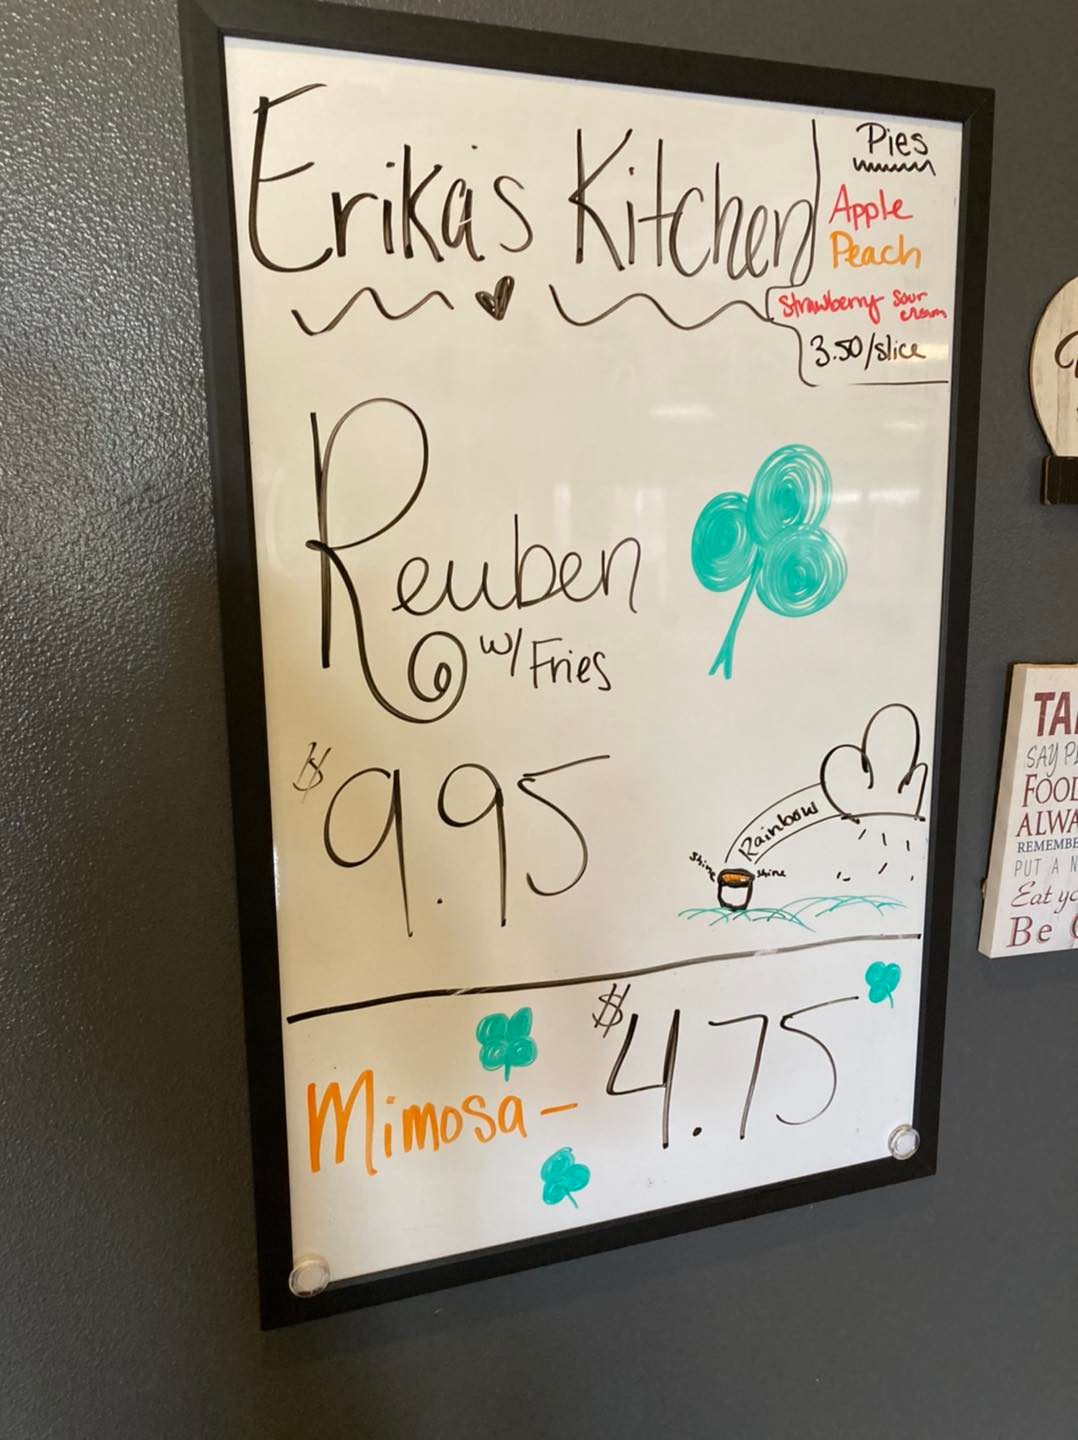 Erika's Kitchen
Pies
Apple
Peach
Strawberry sour
cream
3.50/slice
Reuben
w/ Fries
$9.95
Rainbow
shine
shine
Mimosa - $4.75
TA
SAY P
FOOD
ALWA
REMEMBE
PUT A N
Eat yo
Be